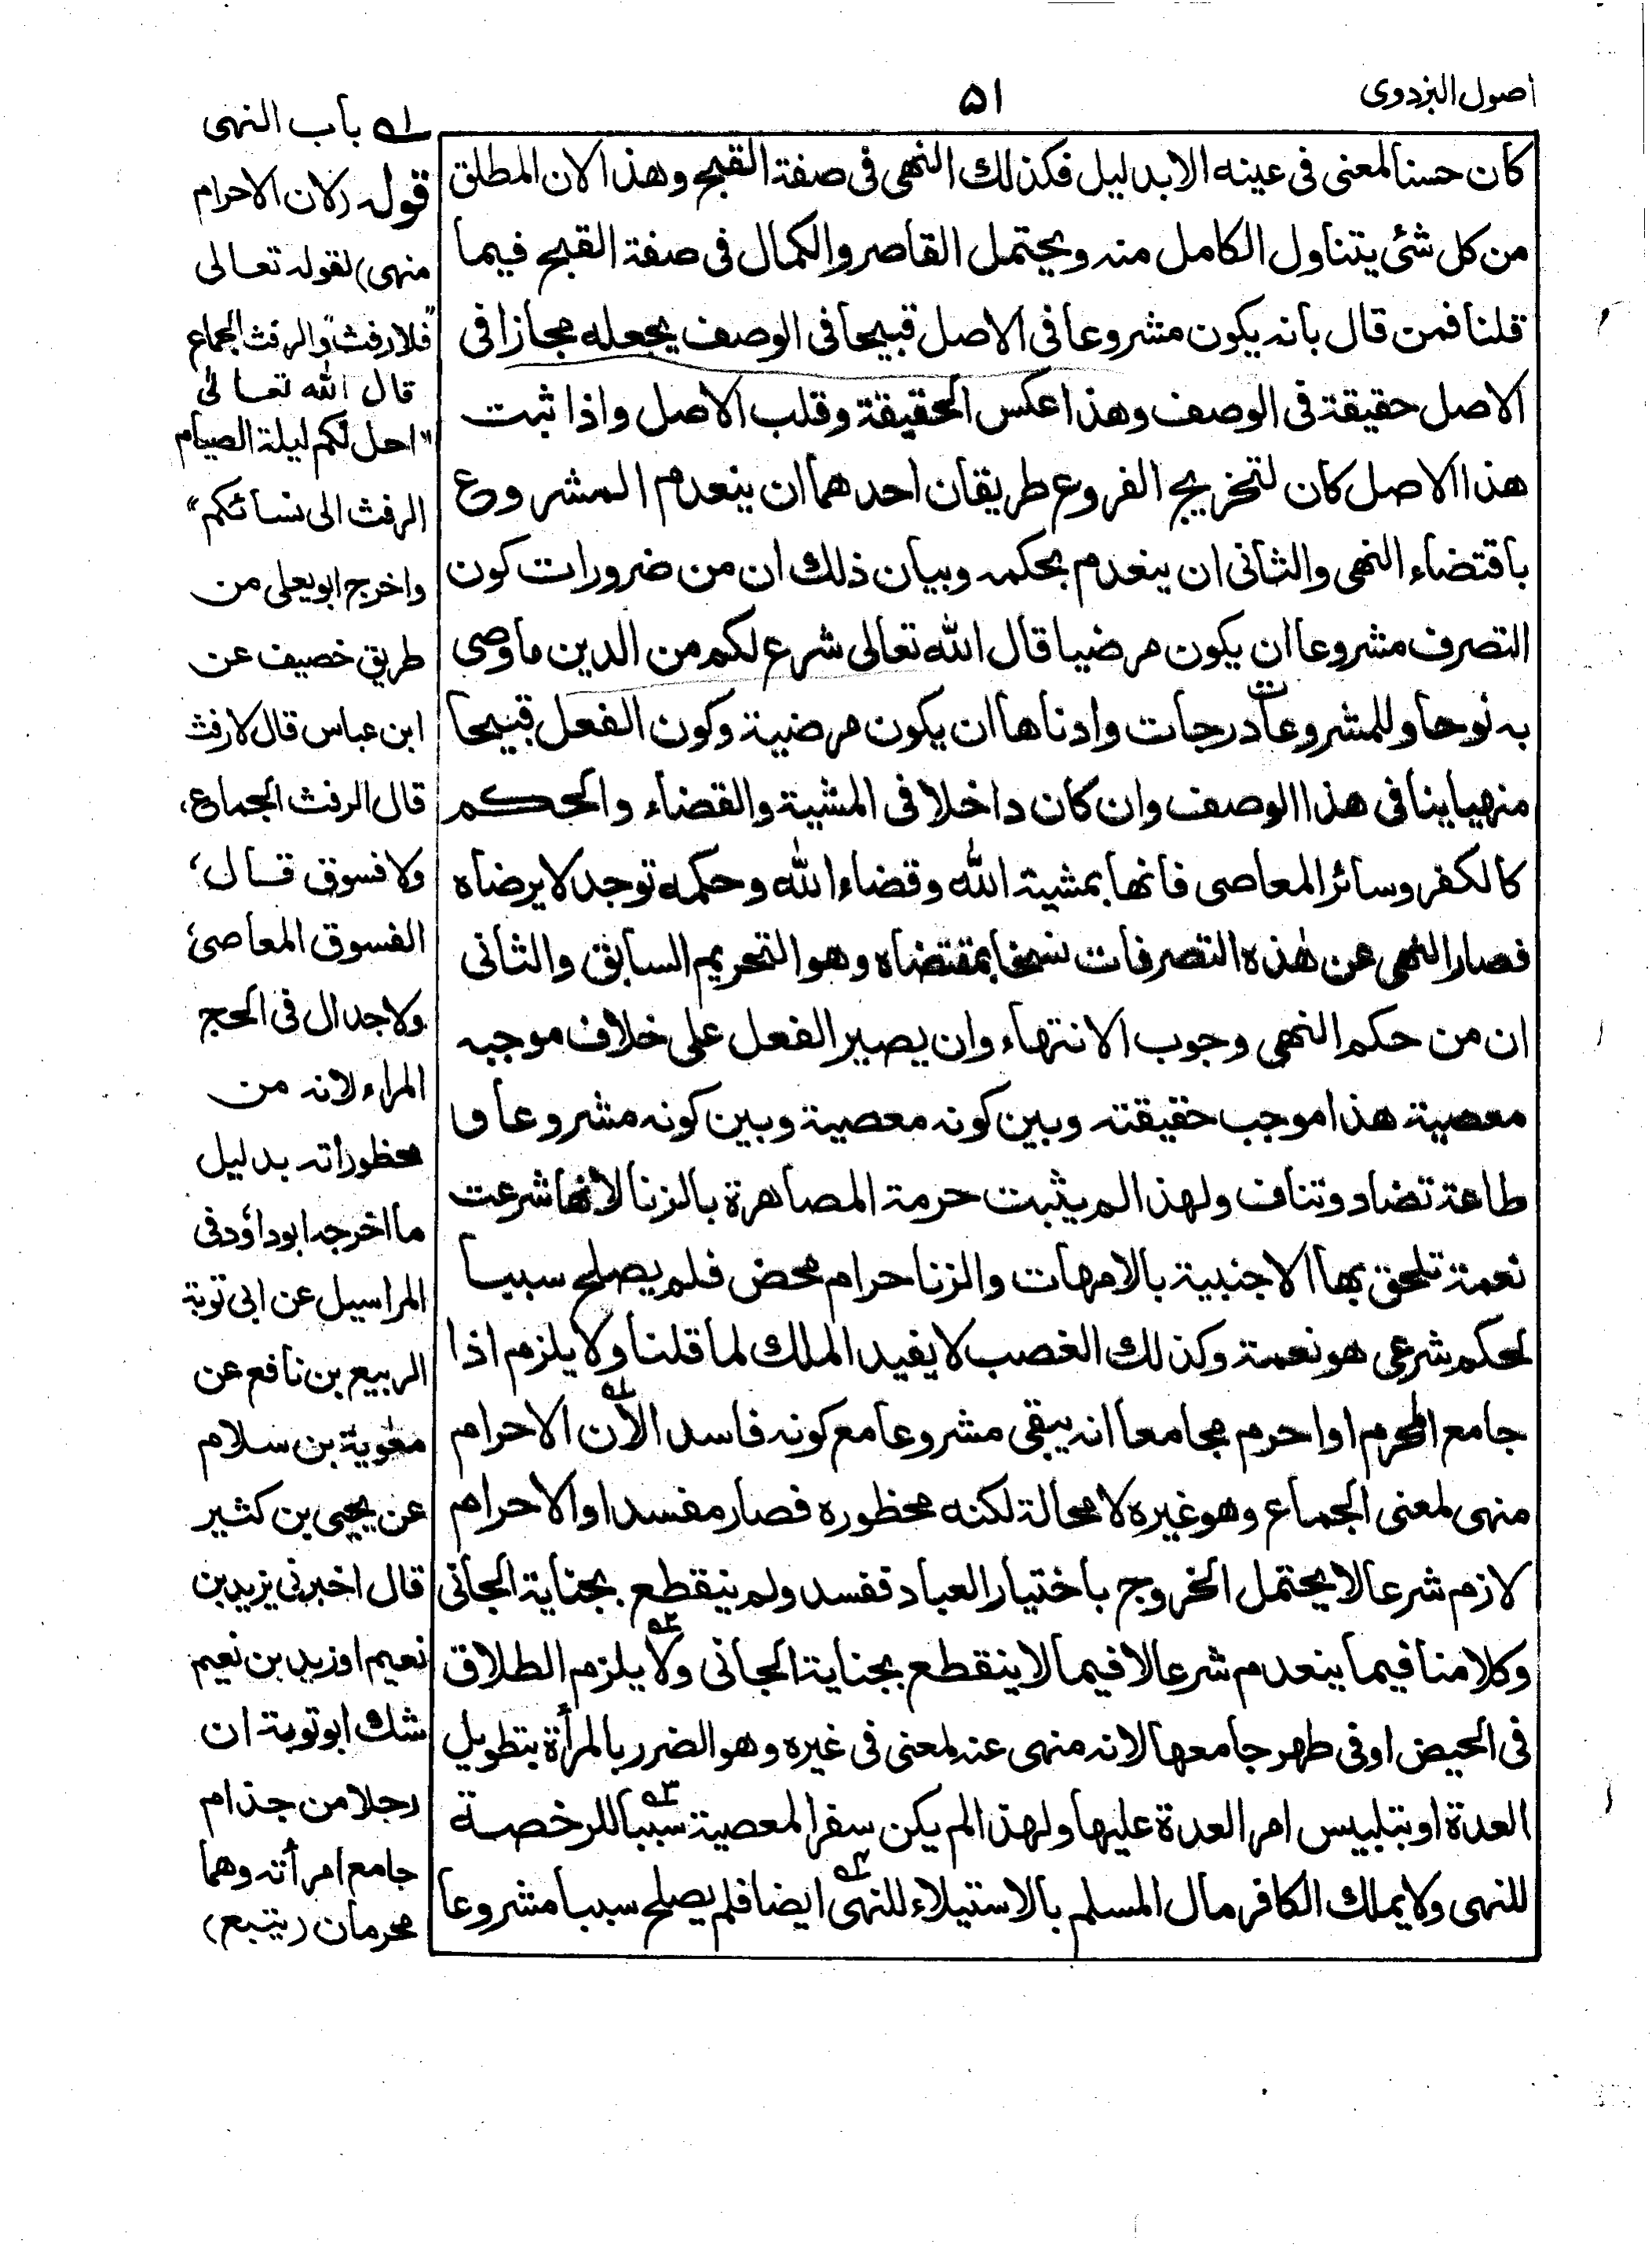 اصول البزدوى
۵۱
كان حسنا لمعنى فى عينه الا بدليل فكذلك النهى فى صفة القبح وهذا لان المطلق
من كل شئ يتناول الكامل منه ويحتمل القاصر والكمال فى صفة القبح فيما
قلنا فمن قال بانه يكون مشروعا فى الاصل قبيحا فى الوصف يجعله مجازا فى
الاصل حقيقة فى الوصف وهذا عكس الحقيقة وقلب الاصل واذا ثبت
هذا الاصل كان لتخريج الفروع طريقان احدهما ان ينعدم المشروع
باقتضاء النهى والثانى ان ينعدم بحكمه وبيان ذلك ان من ضرورات كون
التصرف مشروعا ان يكون مرضيا قال الله تعالى شرع لكم من الدين ما وصى
به نوحا وللمشروعات درجات وادناها ان يكون مرضية وكون الفعل قبيحا
منهيا ينافى هذا الوصف وان كان داخلا فى المشية والقضاء والحكم
كالكفر وسائر المعاصى فانها بمشية الله وقضاء الله وحكمه توجد لا يرضاه
فصار النهى عن هذه التصرفات نسخا بمقتضاه وهو التحريم السابق والثانى
ان من حكم النهى وجوب الانتهاء وان يصير الفعل على خلاف موجبه
معصية هذا موجب حقيقته وبين كونه معصية وبين كونه مشروعا و
طاعة تضاد وتناف ولهذا لم يثبت حرمة المصاهرة بالزنا لانها شرعت
نعمة تلحق بها الاجنبية بالامهات والزنا حرام محض فلم يصلح سببا
لحكم شرعى هو نعمة وكذلك الغصب لا يفيد الملك لما قلنا ولا يلزم اذا
جامع المحرم او احرم مجامعا انه يبقى مشروعا مع كونه فاسدا لان الاحرام
منهى لمعنى الجماع وهو غيره لا محالة لكنه محظوره فصار مفسدا والاحرام
لازم شرعا لا يحتمل الخروج باختيار العباد ففسد ولم ينقطع بجناية الجانى
وكلامنا فيما ينعدم شرعا لا فيما لا ينقطع بجناية الجانى ولا يلزم الطلاق
فى الحيض او فى طهر جامعها لانه منهى عنه لمعنى فى غيره وهو الضرر بالمرأة بتطويل
العدة او بتلبيس امر العدة عليها ولهذا لم يكن سفر المعصية سببا للرخصة
للنهى ولا يملك الكافر مال المسلم بالاستيلاء للنهى ايضا فلم يصلح سببا مشروعا
۱ باب النهى
قوله (لان الاحرام
منهى) لقوله تعالى
"فلا رفث" والرفث الجماع
قال الله تعالى
"احل لكم ليلة الصيام
الرفث الى نسائكم"
واخرج ابو يعلى من
طريق خصيف عن
ابن عباس قال لا رفث
قال الرفث الجماع،
ولا فسوق قال،
الفسوق المعاصى
ولا جدال فى الحج
المراء لانه من
محظوراته بدليل
ما اخرجه ابو داؤد فى
المراسيل عن ابى توبة
الربيع بن نافع عن
معوية بن سلام
عن يحيى بن كثير
قال اخبرنى يزيد بن
نعيم او زيد بن نعيم
شك ابو توبة ان
رجلا من جذام
جامع امرأته وهما
محرمان (يتبع)